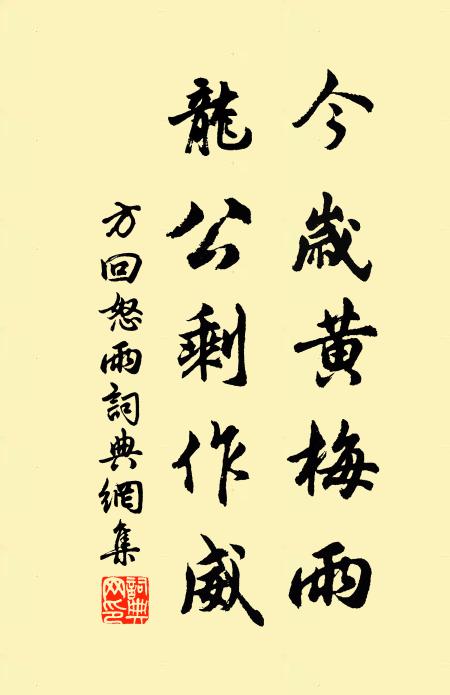 今歲黃梅雨
龍公剩作威
方回怒雨詞典網集
詞典网印